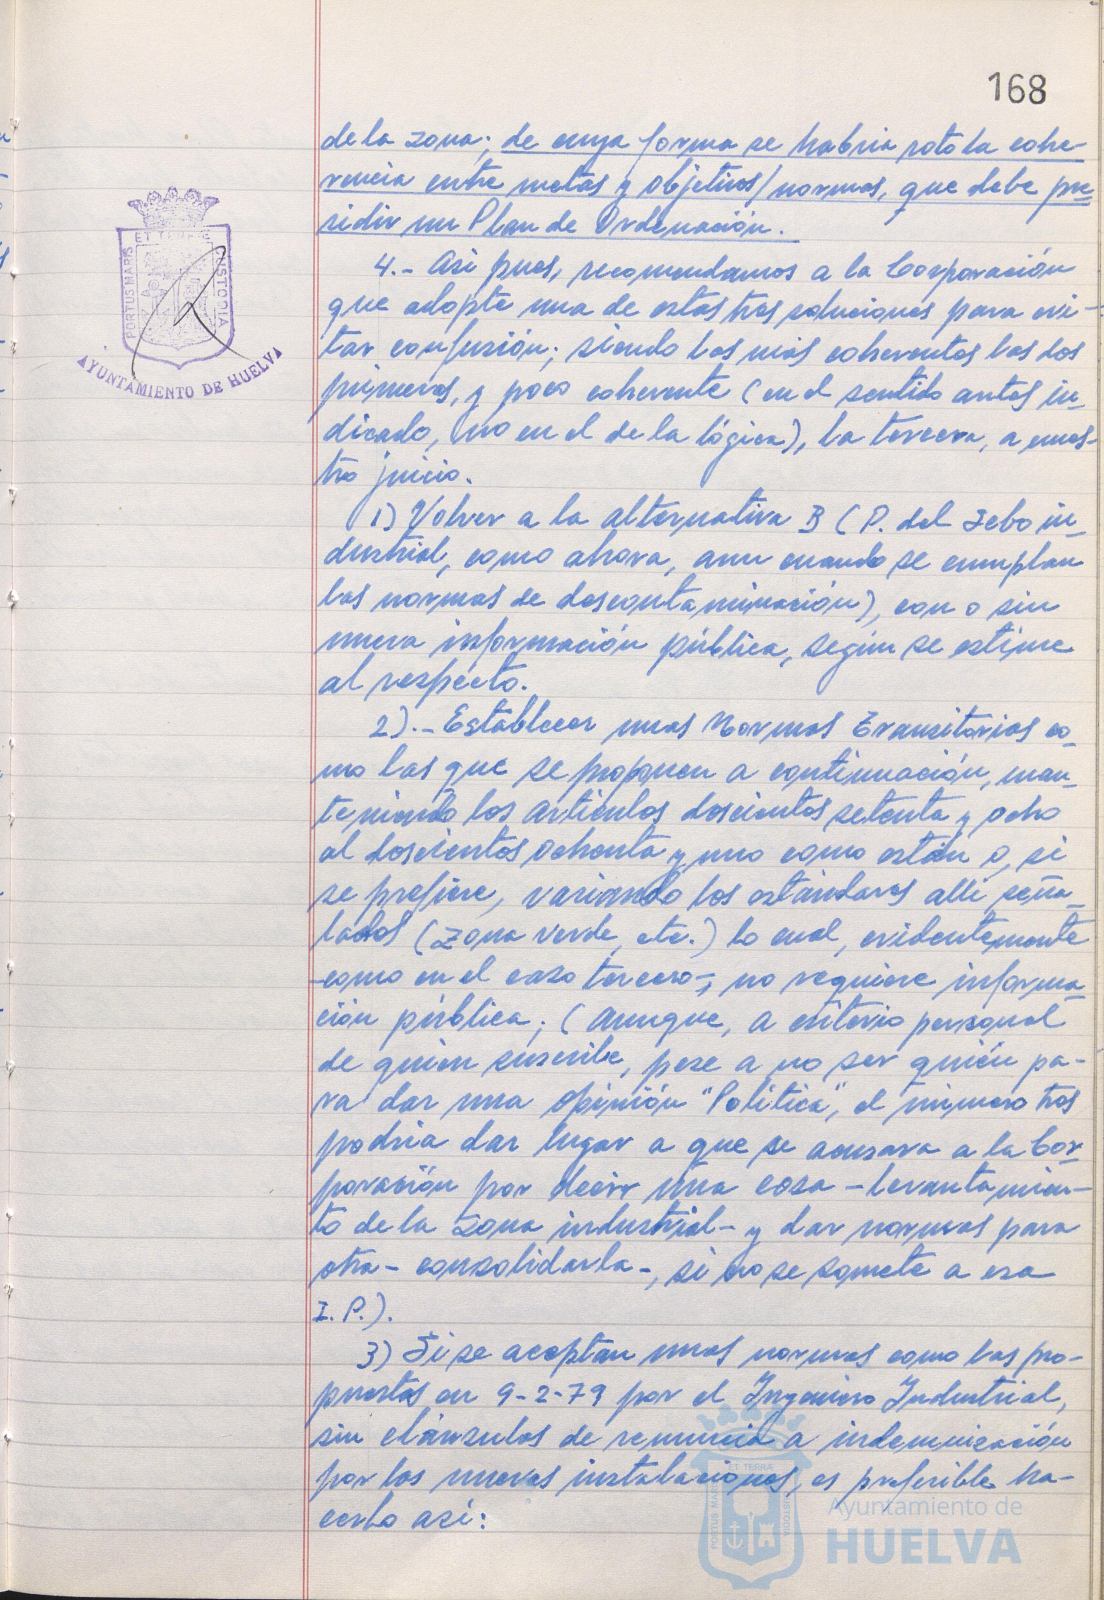 168
de la zona; de cuya forma se habría roto la cohe-
rencia entre metas y objetivos/normas, que debe pre-
sidir un Plan de Ordenación.
4.- Así pues, recomendamos a la Corporación
que adopte una de estas tres soluciones para evi-
tar confusión; siendo las más coherentes las dos
primeras, y poco coherente (en el sentido antes in-
dicado, no en el de la lógica), la tercera, a nues-
tro juicio.
1) Volver a la alternativa B (P. del Sebo in-
dustrial, como ahora, aun cuando se cumplan
las normas de descontaminación), con o sin
nueva información pública, según se estime
al respecto.
2).- Establecer unas Normas Transitorias co-
mo las que se proponen a continuación, man-
teniendo los artículos doscientos setenta y ocho
al doscientos ochenta y uno como están o, si
se prefiere, variando los estándares allí seña-
lados (zona verde, etc.) lo cual, evidentemente
-como en el caso tercero-, no requiere informa-
ción pública; (aunque, a criterio personal
de quien suscribe, pese a no ser quién pa-
ra dar una opinión "Política", el número tres
podría dar lugar a que se acusara a la Cor-
poración por decir una cosa -levantamien-
to de la zona industrial- y dar normas para
otra -consolidarla-, si no se somete a esa
I.P.).
3) Si se aceptan unas normas como las pro-
puestas en 9-2-79 por el Ingeniero Industrial,
sin cláusulas de renuncia a indemnización
por las nuevas instalaciones, es preferible ha-
cerlo así:
PORTUS MARIS ET TERRAE CUSTODIA
AYUNTAMIENTO DE HUELVA
PORTUS MARIS ET TERRAE CUSTODIA
Ayuntamiento de
HUELVA